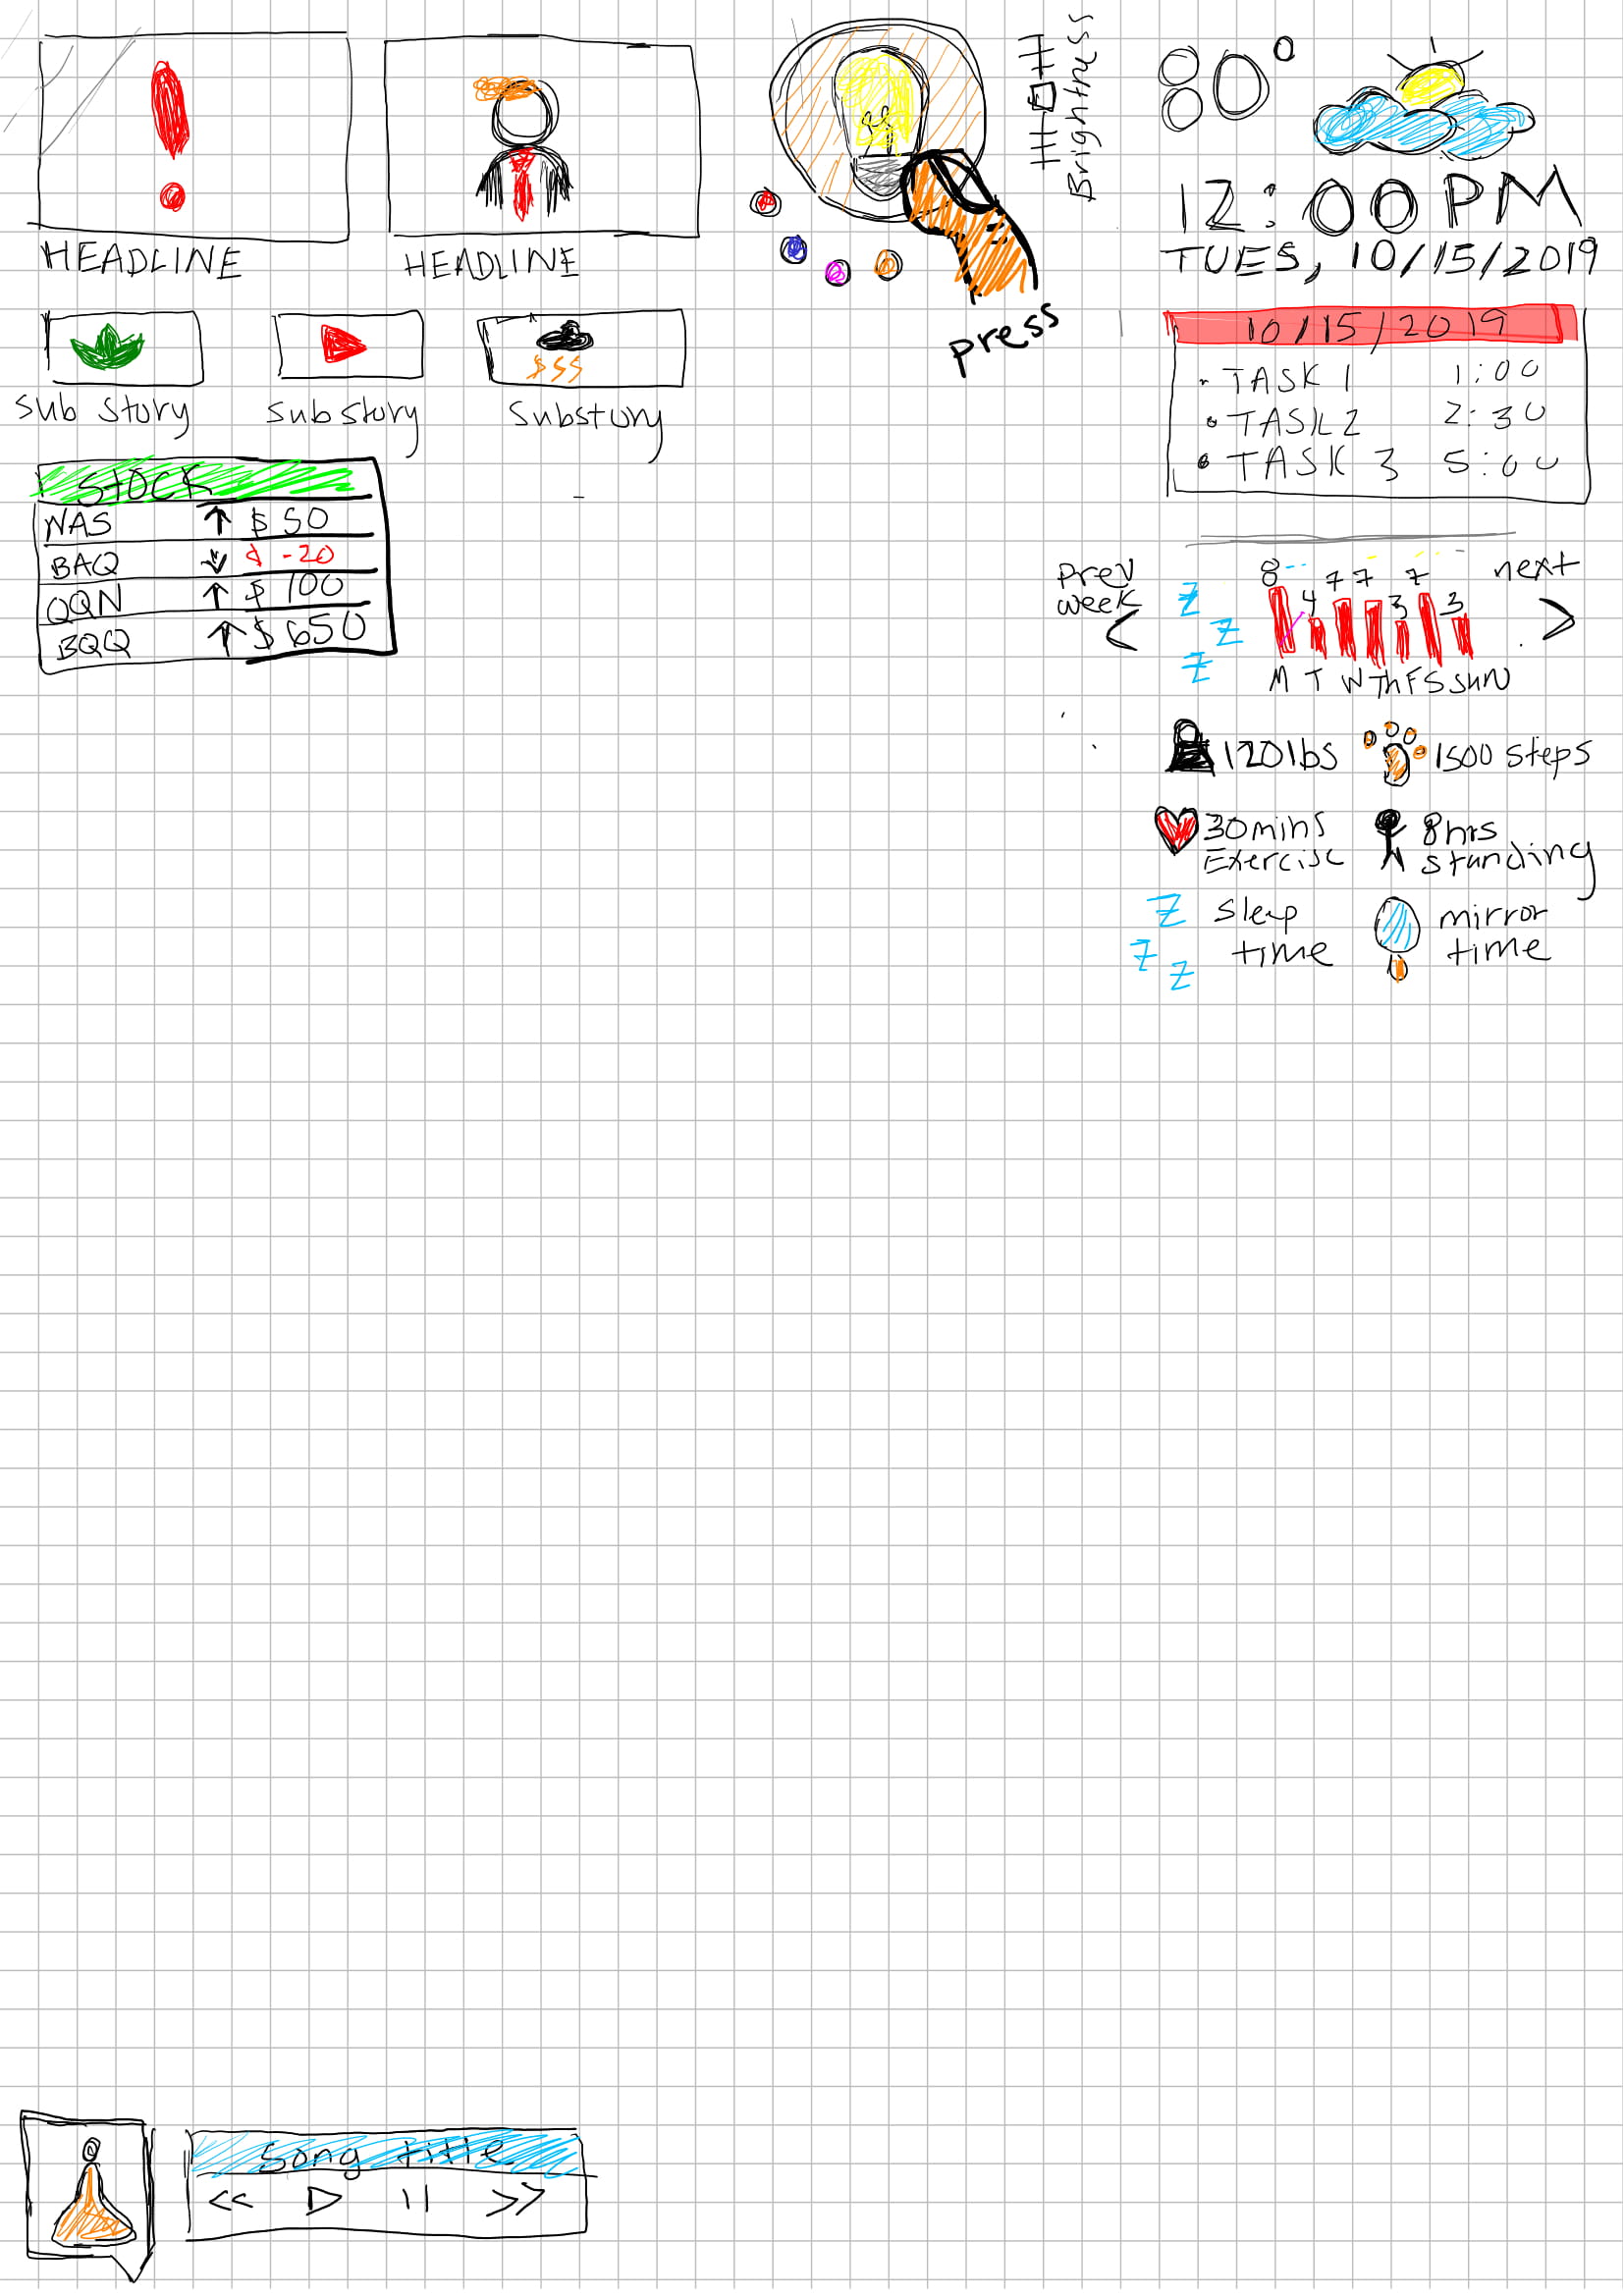 HEADLINE
HEADLINE
sub story
substory
substory
$$$
STOCK
WAS ↑ $ 50
BAQ ↓ $ -20
QQN ↑ $ 100
BQQ ↑ $ 650
Brightness
press
80°
12:00PM
TUES, 10/15/2019
10/15/2019
• TASK 1 1:00
• TASK 2 2:30
• TASK 3 5:00
prev
week
<
next
>
Z
Z
Z
8 4 7 7 3 7 3
M T W Th F S SUN
120 lbs
1500 steps
30 mins
Exercise
8 hrs
standing
Z
Z
Z
sleep
time
mirror
time
song title
<< ▷ || >>